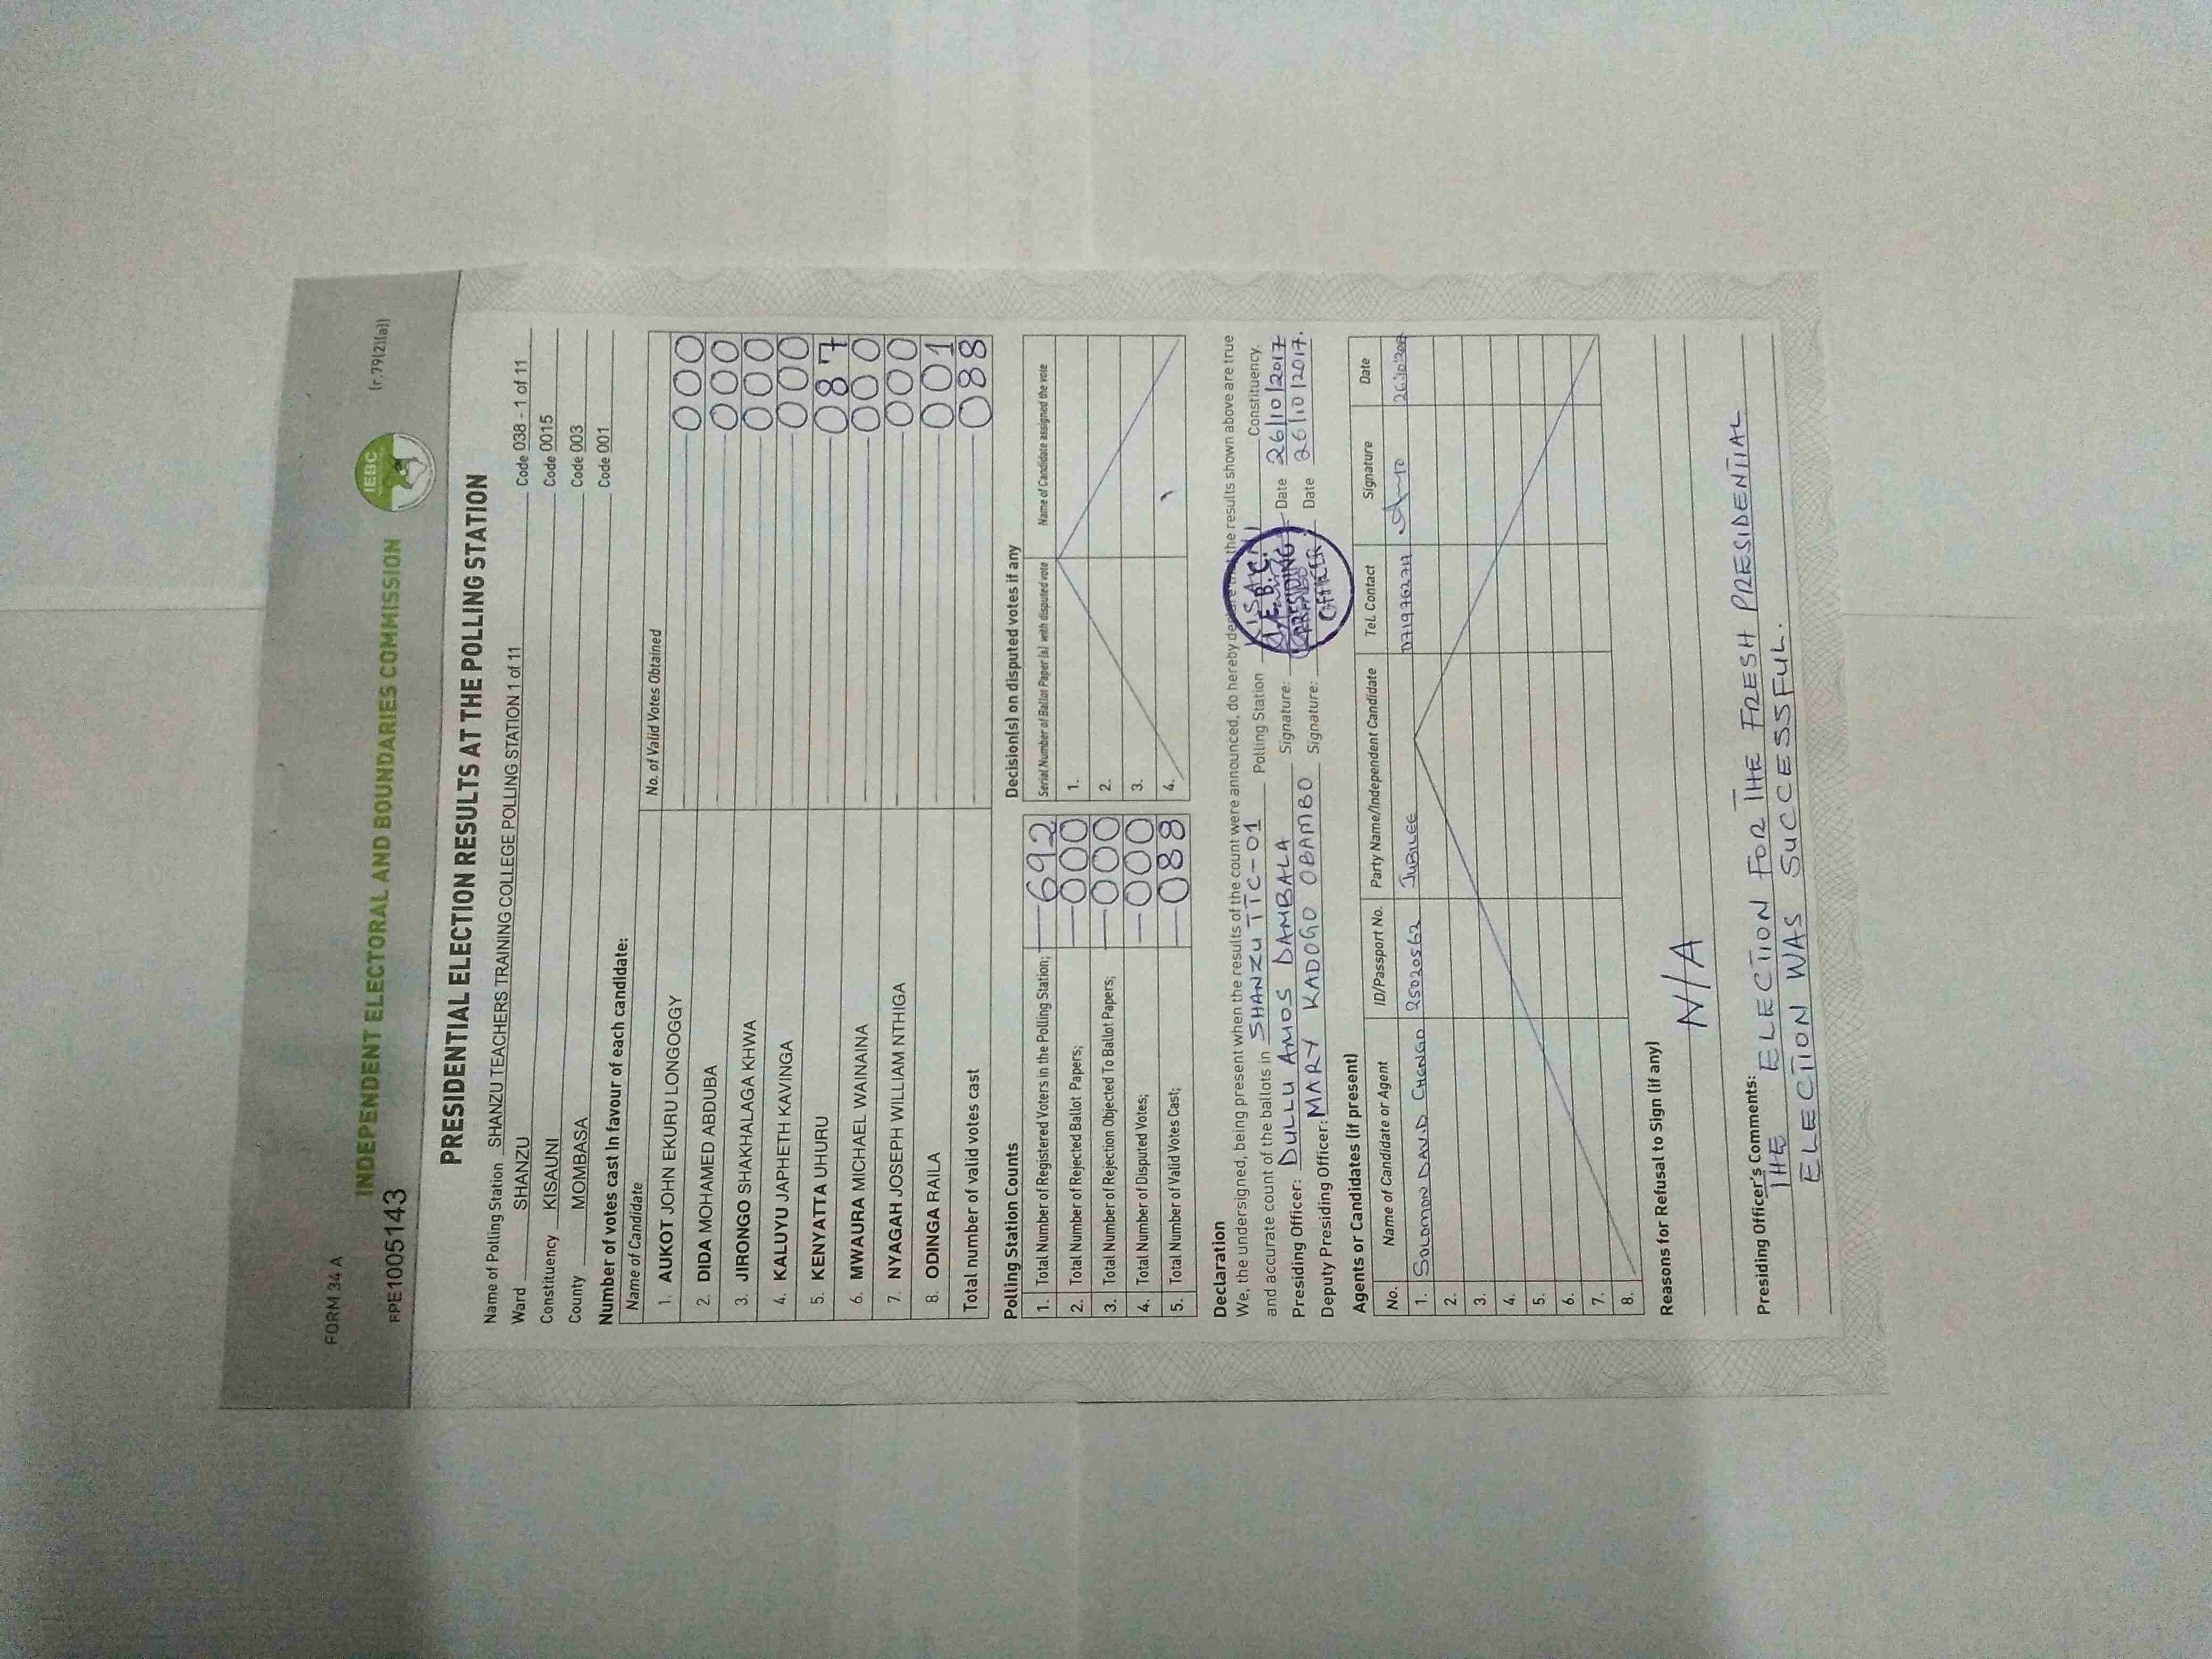 FORM 34 A
(r.79(2)(a))
INDEPENDENT ELECTORAL AND BOUNDARIES COMMISSION
IEBC
FPE10051​43
PRESIDENTIAL ELECTION RESULTS AT THE POLLING STATION
Name of Polling Station SHANZU TEACHERS TRAINING COLLEGE POLLING STATION 1 of 11 Code 038 - 1 of 11
Ward SHANZU Code 0015
Constituency KISAUNI Code 003
County MOMBASA Code 001
Number of votes cast in favour of each candidate:
Name of Candidate No. of Valid Votes Obtained
1. AUKOT JOHN EKURU LONGOGGY 000
2. DIDA MOHAMED ABDUBA 000
3. JIRONGO SHAKHALAGA KHWA 000
4. KALUYU JAPHETH KAVINGA 000
5. KENYATTA UHURU 087
6. MWAURA MICHAEL WAINAINA 000
7. NYAGAH JOSEPH WILLIAM NTHIGA 000
8. ODINGA RAILA 001
Total number of valid votes cast 088
Polling Station Counts
1. Total Number of Registered Voters in the Polling Station; 692
2. Total Number of Rejected Ballot Papers; 000
3. Total Number of Rejection Objected To Ballot Papers; 000
4. Total Number of Disputed Votes; 000
5. Total Number of Valid Votes Cast; 088
Decision(s) on disputed votes if any
Serial Number of Ballot Paper (s) with disputed vote Name of Candidate assigned the vote
1.
2.
3.
4.
Declaration
We, the undersigned, being present when the results of the count were announced, do hereby declare the results shown above are true
and accurate count of the ballots in SHANZU TTC-01 Polling Station KISAUNI Constituency.
Presiding Officer: DULLU AMOS DAMBALA Signature: Date 26/10/2017
Deputy Presiding Officer: MARY KADOGO OBAMBO Signature: Date 26/10/2017.
I.E.B.C.
PRESIDING
OFFICER
Agents or Candidates (if present)
No. Name of Candidate or Agent ID/Passport No. Party Name/Independent Candidate Tel. Contact Signature Date
1. SOLOMON DAVID CHENGO 25020562 JUBILEE 26/10/2017
2.
3.
4.
5.
6.
7.
8.
Reasons for Refusal to Sign (if any)
N/A
Presiding Officer's Comments:
THE ELECTION FOR THE FRESH PRESIDENTIAL
ELECTION WAS SUCCESSFUL.